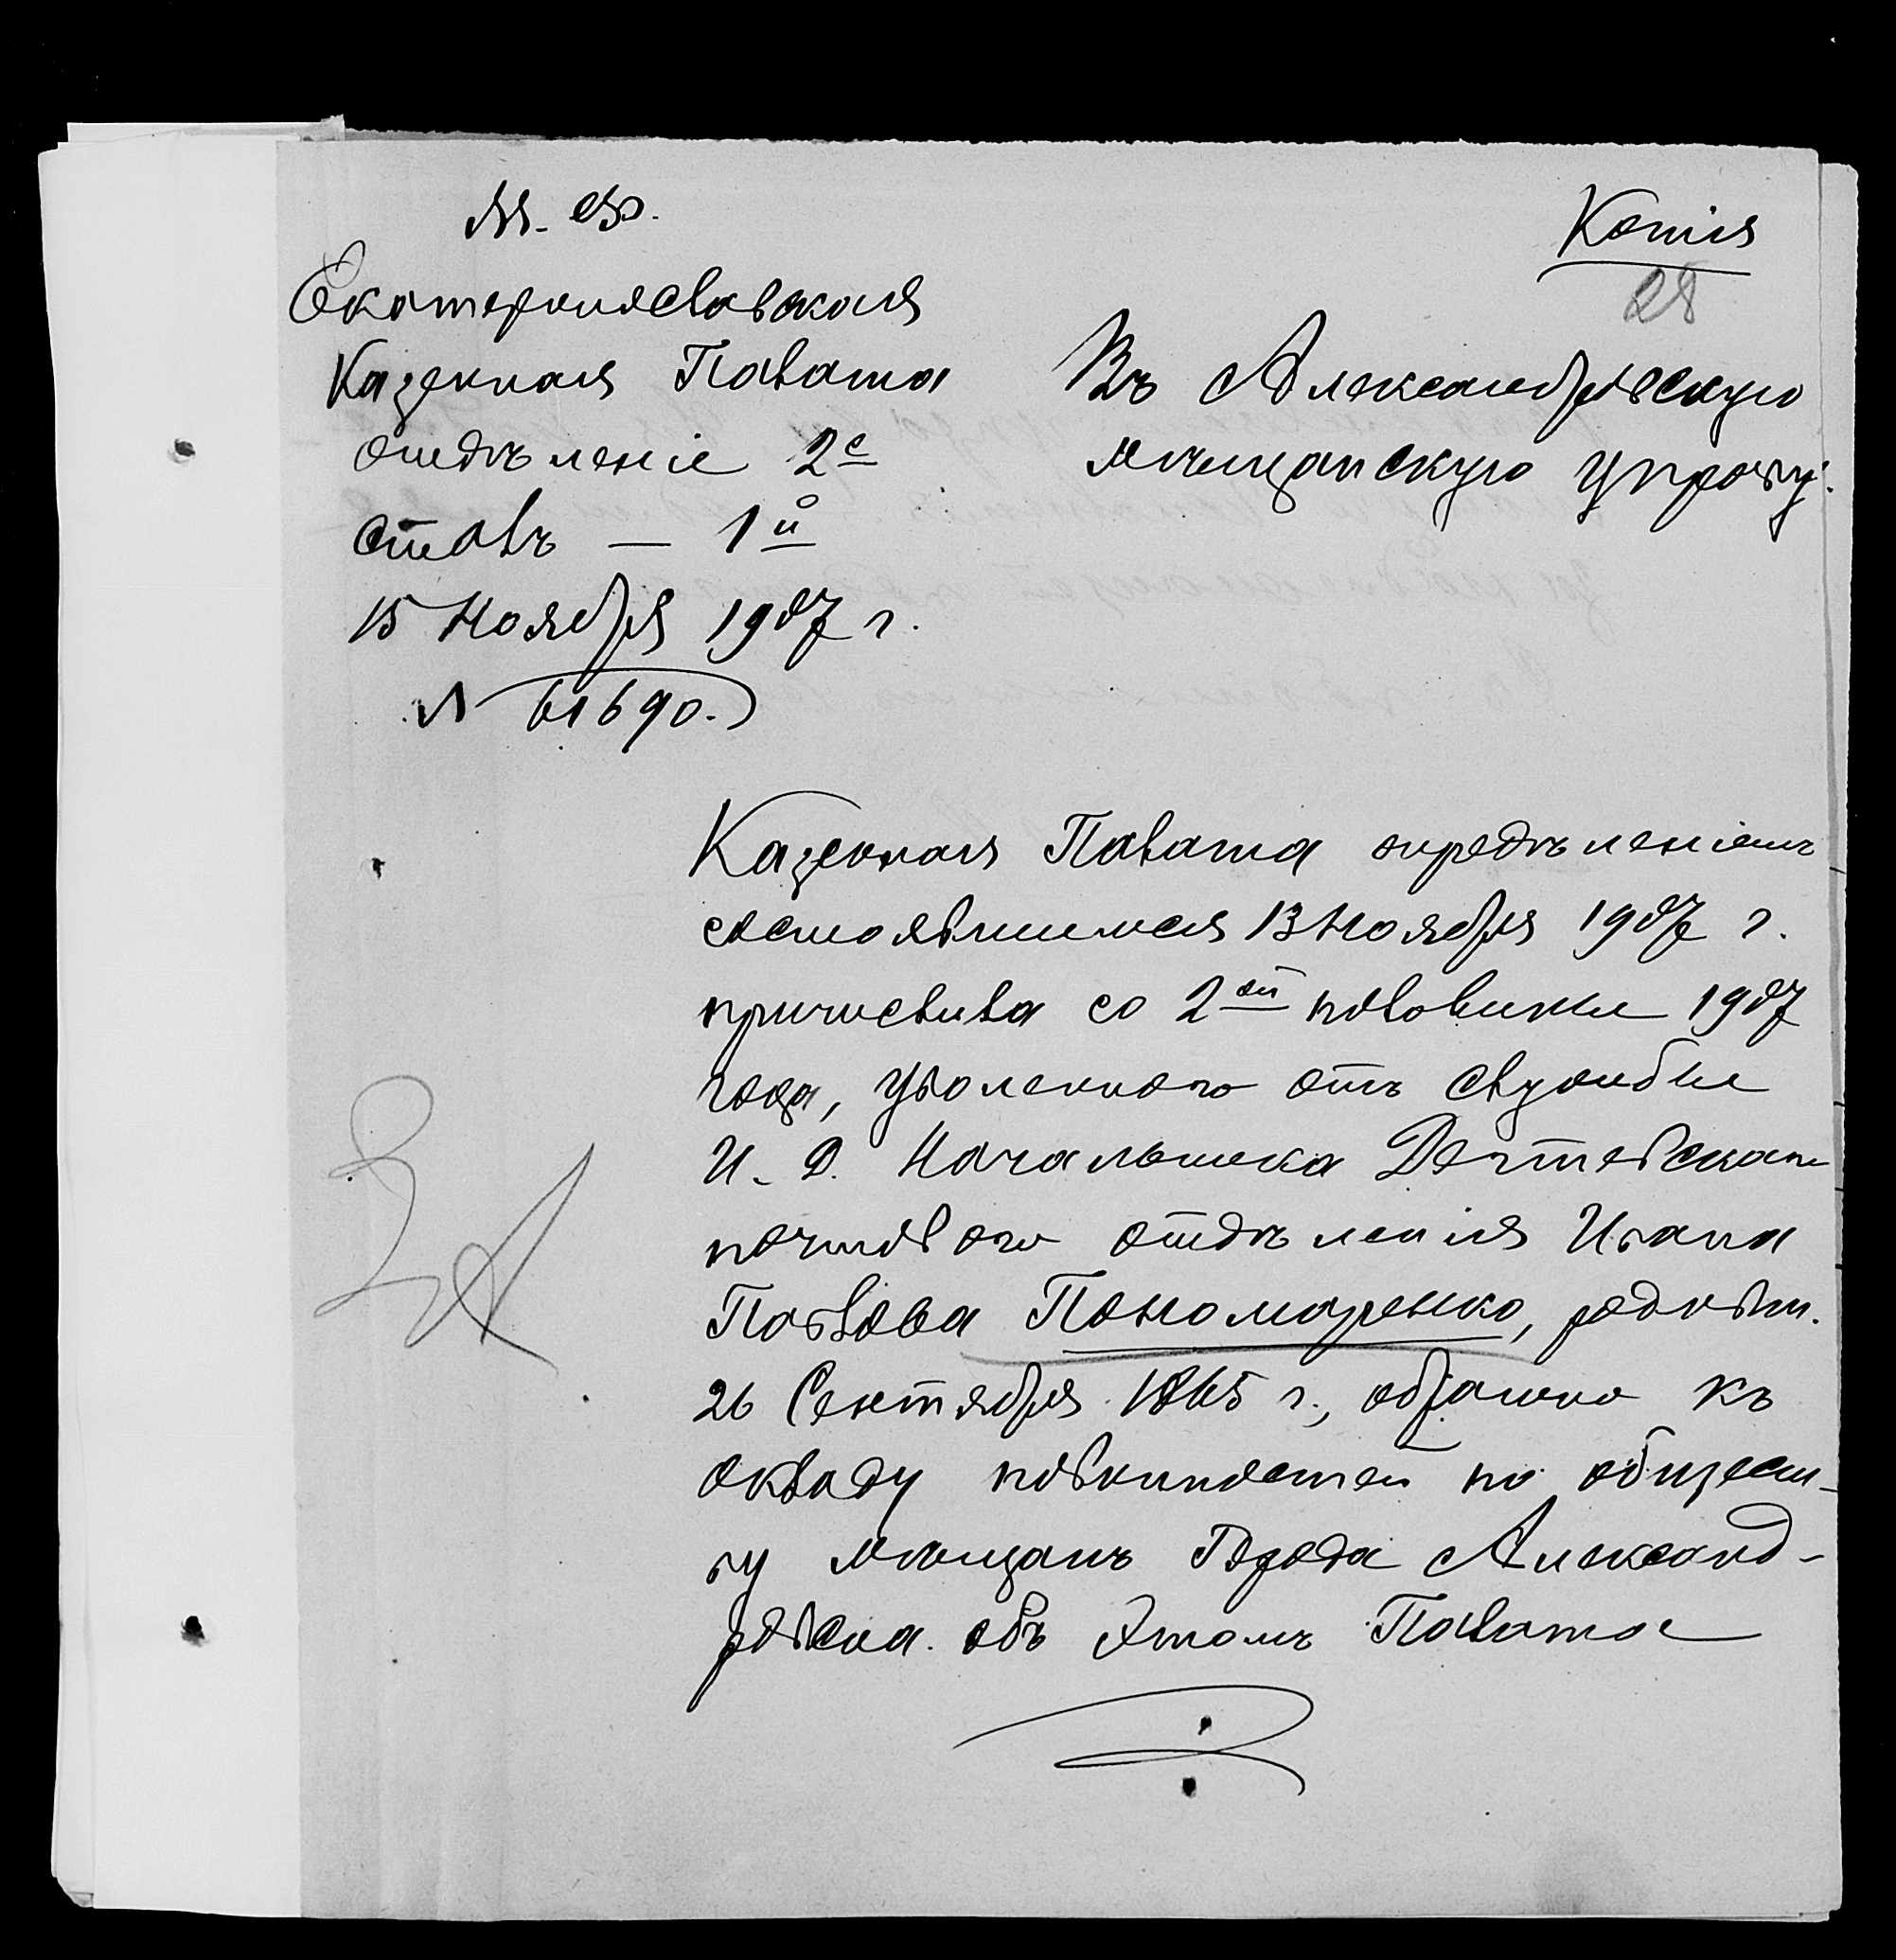 М. Ф.
Екатеринославская
Казенная Палата
отдѣленіе 2е
столъ — 1й
15 Ноября 1907 г.
№ 61690.
Копія
28
Въ Александровскую
мѣщанскую управу.
Казенная Палата опредѣленіемъ
состоявшимся 13 Ноября 1907 г.
причислила со 2ой половины 1907
года, уволеннаго отъ службы
И. Д. Начальника
почтоваго отдѣленія Ивана
Павлова Пономаренко, родивш.
26 Сентября 1865 г., обратно къ
окладу повинностей по общест-
ву мѣщанъ города Александ-
ровска. объ этомъ Палата